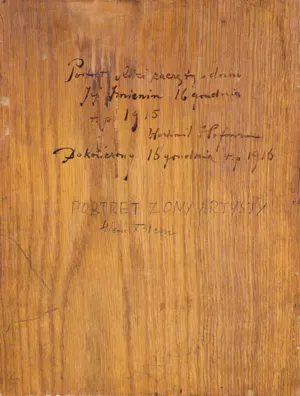 Portret Adzi zaczęty w dniu
Jej Imienin 16 grudnia
r.p. 1915
Wlastimil Hofman
Dokończony 16 grudnia r.p. 1916
PORTRET ZONY ARTYSTY